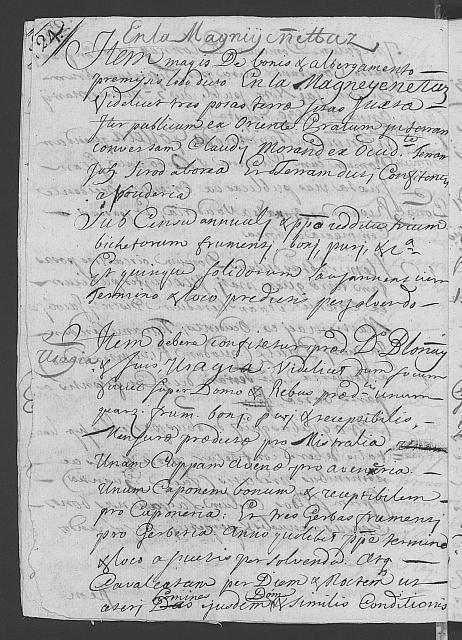 24.
En la Magnieÿenettaz
Item magis De bonis & albergamento
premissis loco dicto En la Magneyenettaz
Videlicet tres posas terræ sitas Juxta
Iter publicum ex Oriente Pratum
conversam Claudj Morand ex Occid.te Terram
ex borea Et Terram
a Vouderia
Sub Censu annualj & ppo redditu trium
bichetorum frumentj bonj, purj, & ca.
Et quinque solidorum Lausannensium
Termino & loco predictis persolvendo
Usagia
Item debere confitetur præd. Do Blonay
& suis, Usagia Videlicet
super Domo & Rebus præd.tis unum
quart. frum. bonj. purj & receptibilis,
Mensuræ prædictæ pro Mistralia
Unam Cuppam avenæ pro aveneria.
Unum Caponem bonum & receptibilem
pro Caponeria. Et tres Gerbas frumentj
pro Gerberia. Anno quolibet ppo termino
& loco persolvenda. Atq
Cavalcatam per Diem & Noctem ut
cæterj Homines ejusdem Dom & similis Conditionis